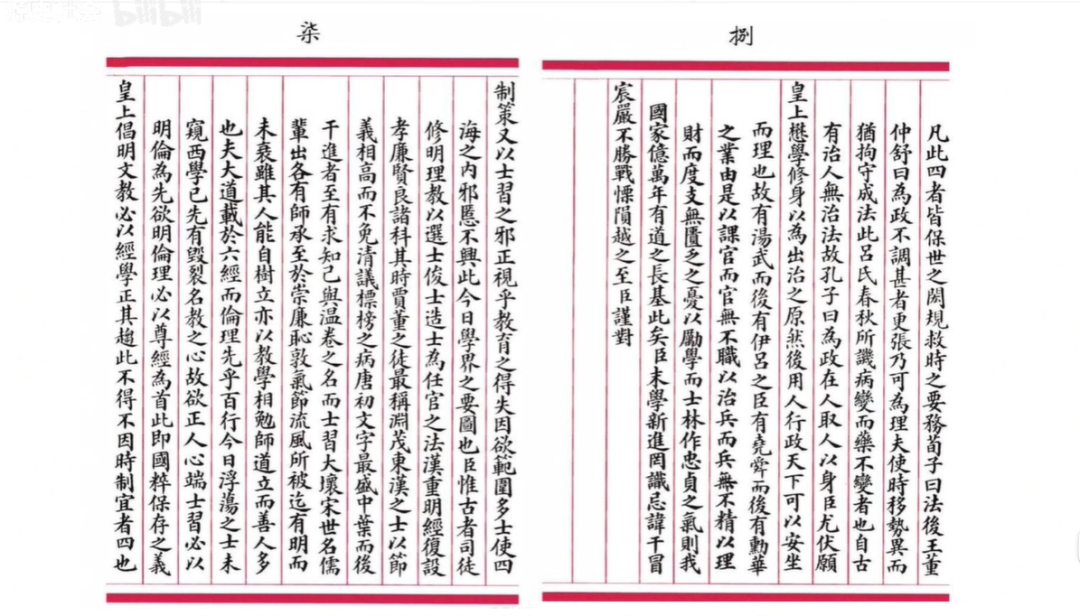 bilibili
柒
制策又以士習之邪正視乎教育之得失因欲範圍多士使四
海之內邪慝不興此今日學界之要圖也臣惟古者司徒
修明理教以選士俊士造士為任官之法漢重明經復設
孝廉賢良諸科其時賈董之徒最稱淵茂東漢之士以節
義相高而不免清議標榜之病唐初文字最盛中葉而後
干進者至有求知己與溫卷之名而士習大壞宋世名儒
輩出各有師承至於崇廉恥敦氣節流風所被迄有明而
未衰雖其人能自樹立亦以教學相勉師道立而善人多
也夫大道載於六經而倫理先乎百行今日浮蕩之士未
窺西學已先有毀裂名教之心故欲正人心端士習必以
明倫為先欲明倫理必以尊經為首此即國粹保存之義
皇上倡明文教必以經學正其趨此不得不因時制宜者四也
捌
凡此四者皆保世之閎規救時之要務荀子曰法後王董
仲舒曰為政不調甚者更張乃可為理夫使時移勢異而
猶拘守成法此呂氏春秋所譏病變而藥不變者也自古
有治人無治法故孔子曰為政在人取人以身臣尤伏願
皇上懋學修身以為出治之原然後用人行政天下可以安坐
而理也故有湯武而後有伊呂之臣有堯舜而後有勳華
之業由是以課官而官無不職以治兵而兵無不精以理
財而度支無匱乏之憂以勵學而士林作忠貞之氣則我
國家億萬年有道之長基此矣臣末學新進罔識忌諱干冒
宸嚴不勝戰慄隕越之至臣謹對